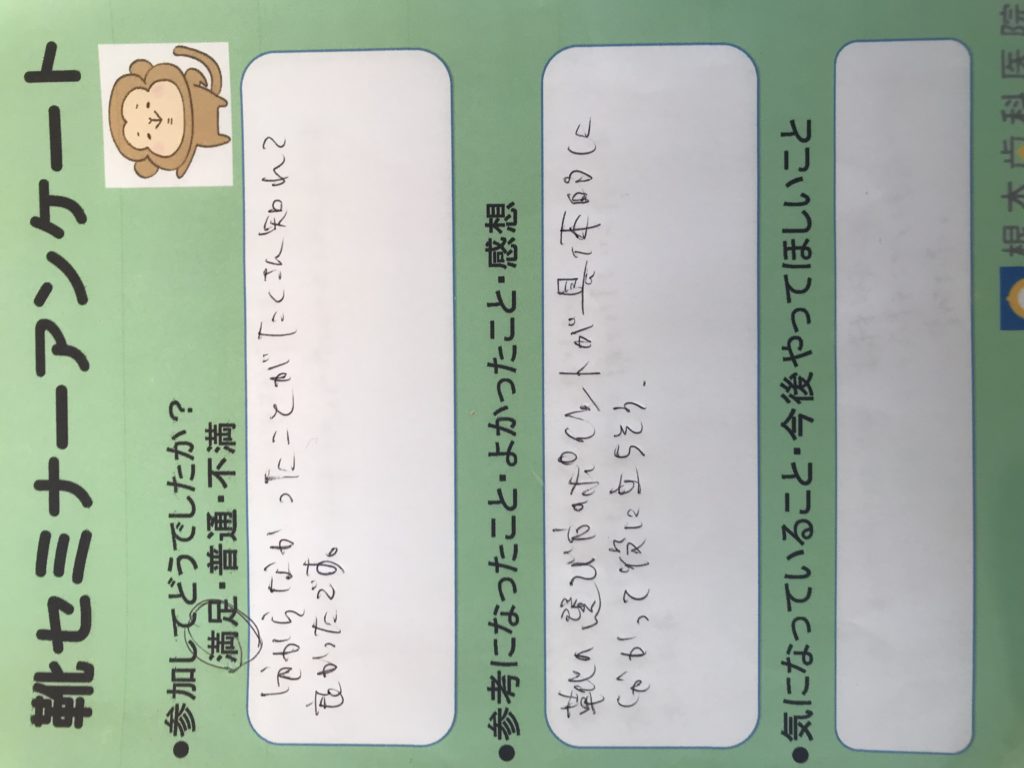 靴セミナーアンケート
●参加してどうでしたか?
満足・普通・不満
分からなかったことがたくさん知れて
良かったです。
●参考になったこと・よかったこと・感想
靴の選び方のポイントが具体的に
分かって役に立ちそう。
●気になっていること・今後やってほしいこと
根本歯科医院